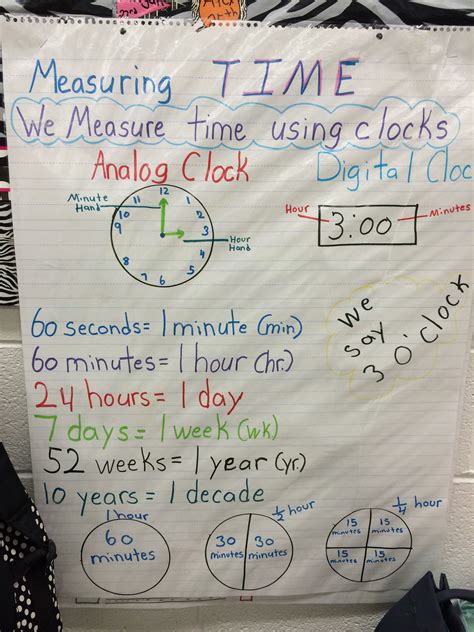 Measuring TIME
We Measure time using clocks
Analog Clock
Digital Cloc
Minute
Hand
12
11
10
9
8
7
6
5
4
3
2
1
Hour
Hand
Hour
3:00
Minutes
We
say
3 o'clock
60 seconds= 1 minute (min)
60 minutes= 1 hour (hr.)
24 hours = 1 day
7 days = 1 week (wk)
52 weeks= 1 year (yr.)
10 years = 1 decade
1 hour
60
minutes
1/2 hour
30
minutes
30
minutes
1/4 hour
15
minutes
15
minutes
15
minutes
15
minutes